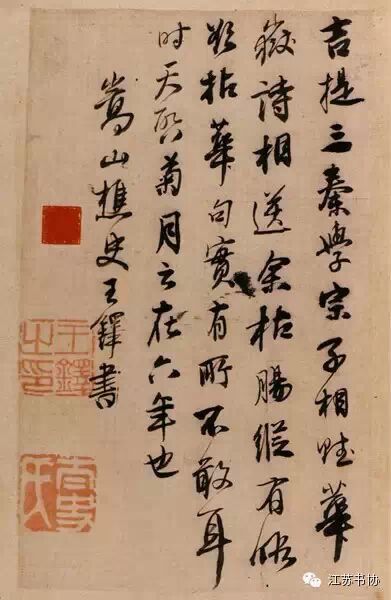 吉提三秦學宗子相賦華
嶽詩相送余枯腸縱有
拈華句實有所不敢耳
时天啓菊月云在六年也
嵩山樵史王鐸書
王鐸之印
江苏书协